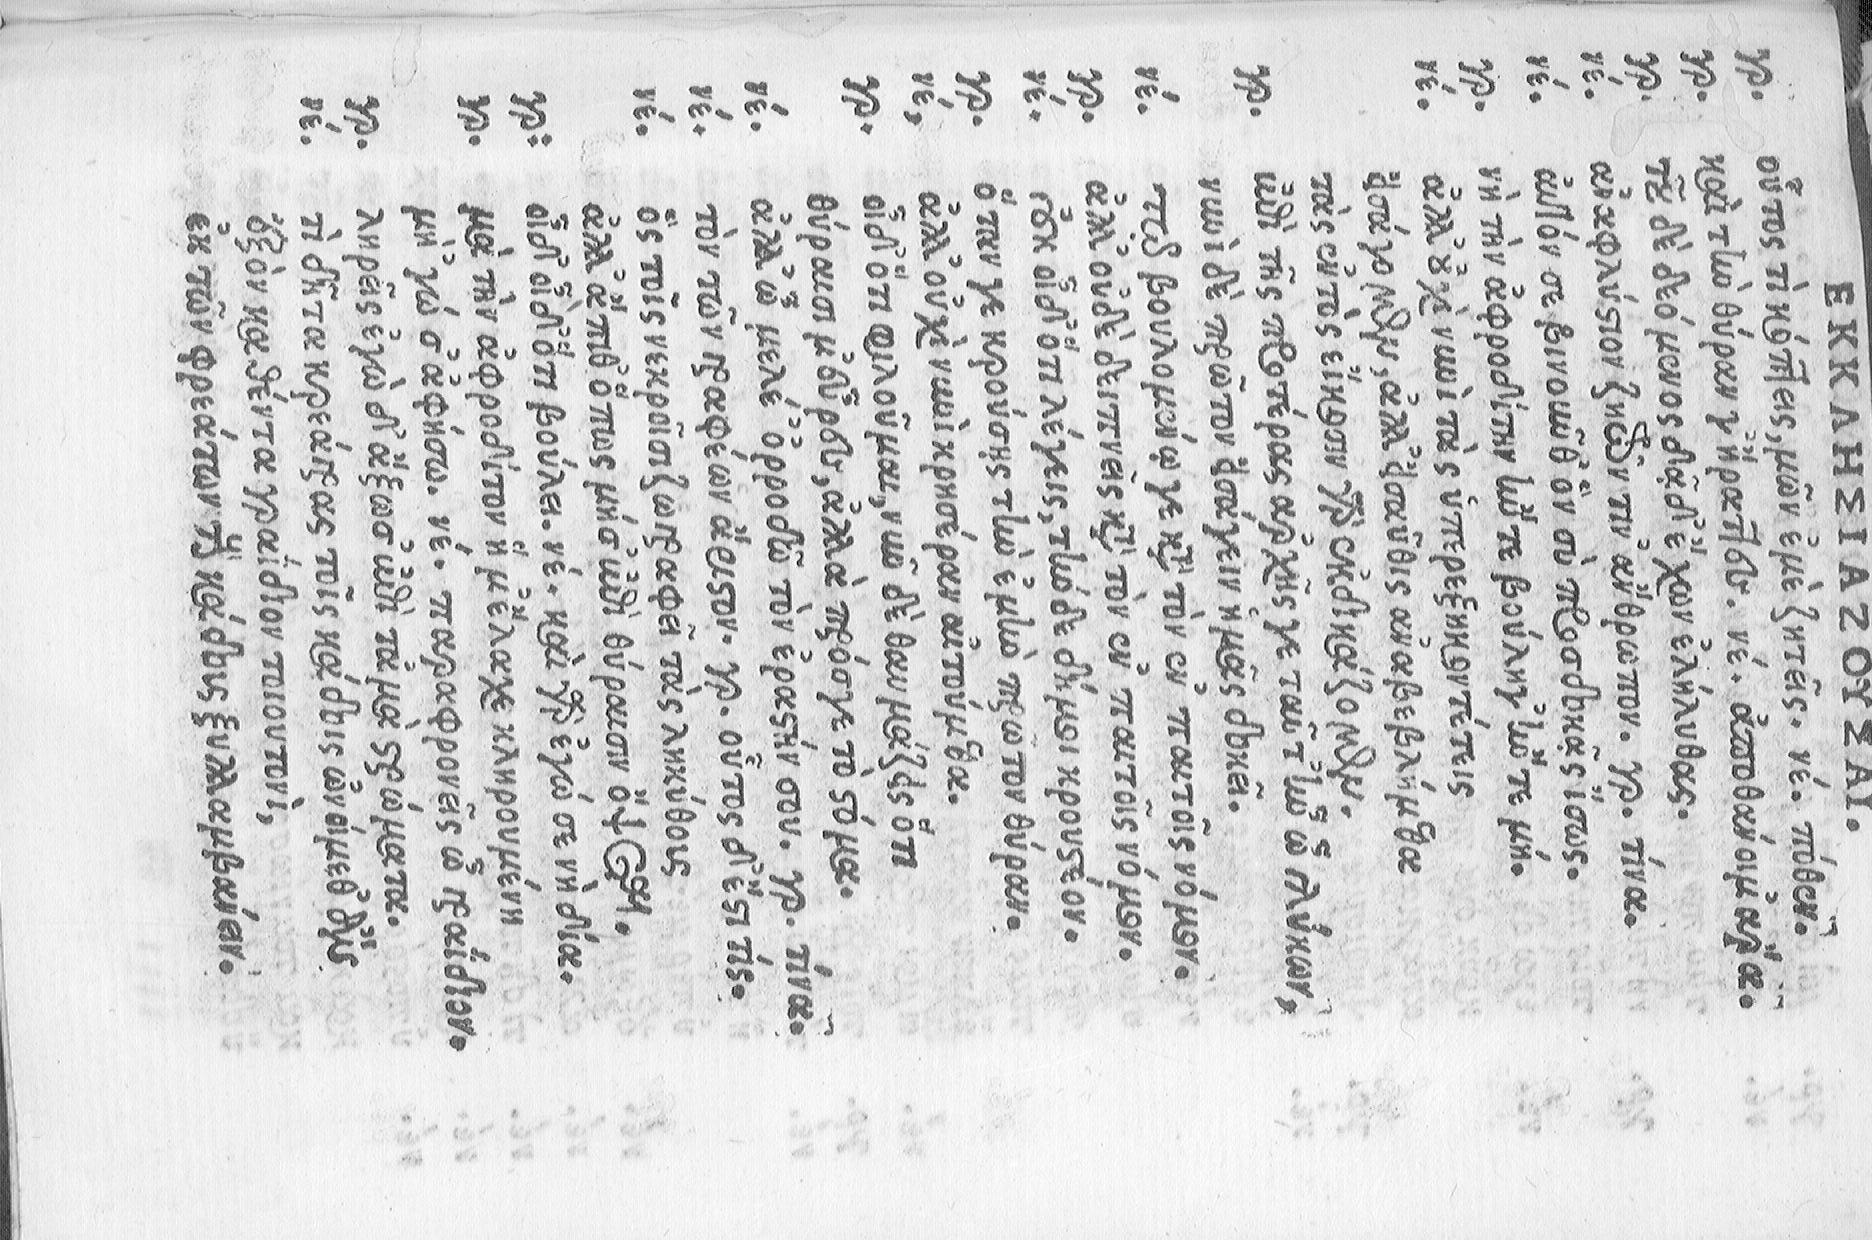 ΕΚΚΛΗΣΙΑΖΟΥΣΑΙ.
γρ. οὗτος τί κόπτεις, μῶν ἐμὲ ζητεῖς. νέ. πόθεν.
γρ. καὶ τὴν θύραν γ' ἤραττες. νέ. ἀποθάνοιμ' ἄρα.
γρ. τοῦ δὲ δεόμενος δᾷδ' ἔχων ἐλήλυθας.
νέ. ἀναφλύστιον ζητῶν τιν' ἄνθρωπον. γρ. τίνα.
νέ. οὐ τόν σε βινοῦνθ' ὃν σὺ προσδοκᾷς ἴσως.
γρ. νὴ τὴν ἀφροδίτην ἤν τε βούλῃ γ' ἤν τε μή.
νέ. ἀλλ' οὐχὶ νυνὶ τὰς ὑπερεξηκοντέτεις
εἰσάγομεν, ἀλλ' εἰσαῦθις ἀναβεβλήμεθα
τὰς ἐντὸς εἴκοσιν γὰρ ἐκδικάζομεν.
γρ. ἐπὶ τῆς προτέρας ἀρχῆς γε ταῦτ' ἦν ὦ γλύκων,
νυνὶ δὲ πρῶτον εἰσάγειν ἡμᾶς δοκεῖ.
νέ. τῷ βουλομένῳ γε κατὰ τὸν ἐν παυτοῖς νόμον.
γρ. ἀλλ' οὐδὲ δειπνεῖς κατὰ τὸν ἐν παυτοῖς νόμον.
νέ. οὐκ οἶδ' ὅτι λέγεις, τὴν δὲ δή μοι κρουστέον.
γρ. ὅταν γε κρούσῃς τὴν ἐμὴν πρῶτον θύραν.
νέ. ἀλλ' οὐχὶ νυνὶ κρησέραν αἰτούμεθα.
γρ. οἶδ' ὅτι φιλοῦμαι, νῦν δὲ θαυμάζεις ὅτι
θύρασί μ' εὗρες, ἀλλὰ πρόσαγε τὸ στόμα.
νέ. ἀλλ' ὦ μέλ' ὀρρωδῶ τὸν ἐραστήν σου. γρ. τίνα.
νέ. τὸν τῶν γραφέων ἄριστον. γρ. οὗτος δ' ἔστι τίς.
νέ. ὃς τοῖς νεκροῖσι ζωγραφεῖ τὰς ληκύθους
ἀλλ' ἄπιθ' ὅπως μή σ' ἐπὶ θύραισιν ὄψεται.
γρ. οἶδ' οἶδ' ὅτι βούλει. νέ. καὶ γὰρ ἐγώ σε νὴ δία.
γρ. μὰ τὴν ἀφροδίτην ἥ μ' ἔλαχε κληρουμένη
μὴ 'γώ σ' ἀφήσω. νέ. παραφρονεῖς ὦ γραΐδιον.
γρ. ληρεῖς ἐγὼ δ' ἄξω σ' ἐπὶ τἀμὰ στρώματα.
νέ. τί δῆτα κρεάγρας τοῖς κάδοις ὠνοίμεθ' ἄν
ἐξὸν καθέντα γραΐδιον τοιουτονὶ,
ἐκ τῶν φρεάτων τοὺς κάδους ξυλλαμβάνειν.